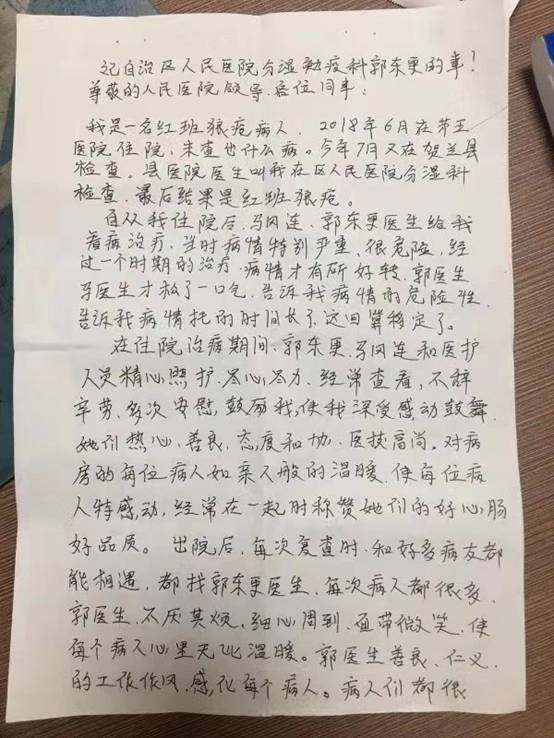 记自治区人民医院分湿免疫科郭东更的事!
尊敬的人民医院领导.各位同事:
我是一名红班狼疮病人. 2018年6月在第五
医院住院,未查出什么病。今年7月又在贺兰县
检查.县医院医生叫我在区人民医院分湿科
检查.最后结果是红班狼疮。
自从我住院后,马冈连、郭东更医生给我
看病治疗.当时病情特别严重.很危险,经
过一个时期的治疗.病情才有所好转.郭医生
马医生才松了一口气.告诉我病情的危险性.
告诉我病情托的时间长了.这回算稳定了。
在住院治病期间.郭东更.马冈连和医护
人员精心照护.尽心尽力.经常查看,不辞
辛劳.多次安慰.鼓励我,使我深受感动鼓舞.
她们热心,善良,态度和协,医技高尚。对病
房的每位病人如亲人般的温暖.使每位病
人特感动,经常在一起时称赞她们的好心肠
好品质。出院后,每次复查时.和好多病友都
能相遇,都找郭东更医生.每次病人都很多.
郭医生.不厌其烦,细心周到.面带微笑.使
每个病人心里无比温暖。郭医生善良、仁义.
的工作作风.感化每个病人。病人们都很